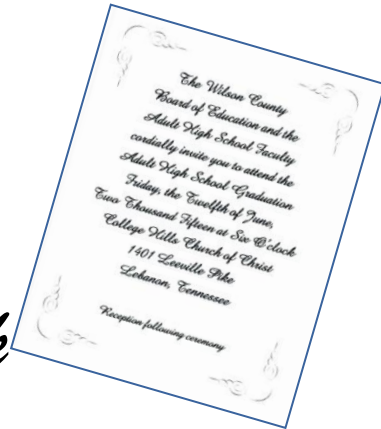 The Wilson County
Board of Education and the
Adult High School Faculty
cordially invite you to attend the
Adult High School Graduation
Friday, the Twelfth of June,
Two Thousand Fifteen at Six O'clock
College Hills Church of Christ
1401 Leeville Pike
Lebanon, Tennessee
Reception following ceremony